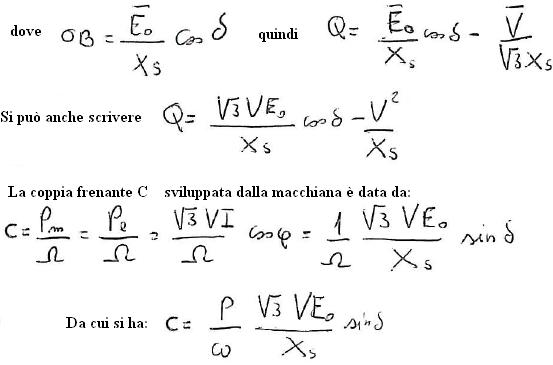 dove OB = E̅₀/Xs cos δ quindi Q = E̅₀/Xs cos δ - V̅/√3Xs
Si può anche scrivere Q = √3 VE₀/Xs cos δ - V²/Xs
La coppia frenante C sviluppata dalla macchiana è data da:
C = Pm/Ω = Pe/Ω = √3 VI/Ω cos φ = 1/Ω √3 VE₀/Xs sin δ
Da cui si ha: C = P/ω √3 VE₀/Xs sin δ